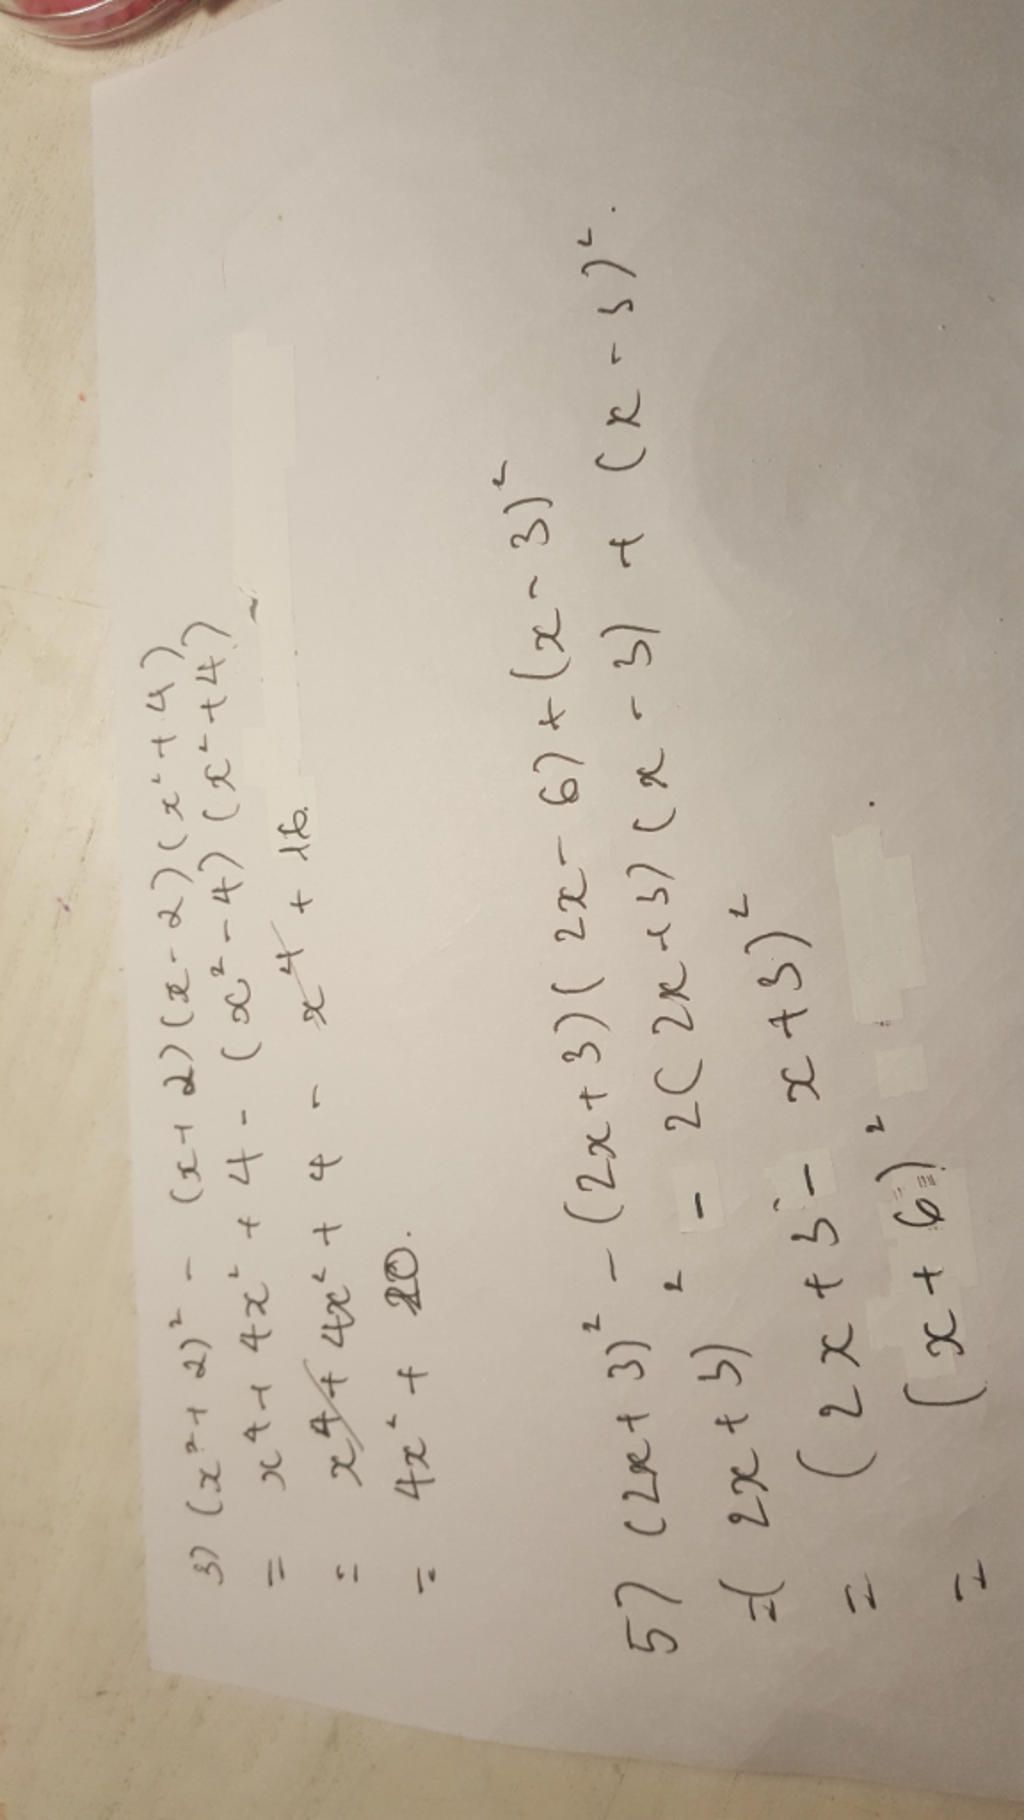 3) (x²+2)² - (x+2)(x-2)(x²+4)
= x4+4x²+4-(x²-4)(x²+4)
= x4+4x²+4 - x4+16.
= 4x²+20.
5) (2x+3)² - (2x+3)(2x-6)+(x-3)²
=(2x+3)² - 2(2x+3)(x-3)+(x-3)².
= (2x+3-x+3)²
= (x+6)²